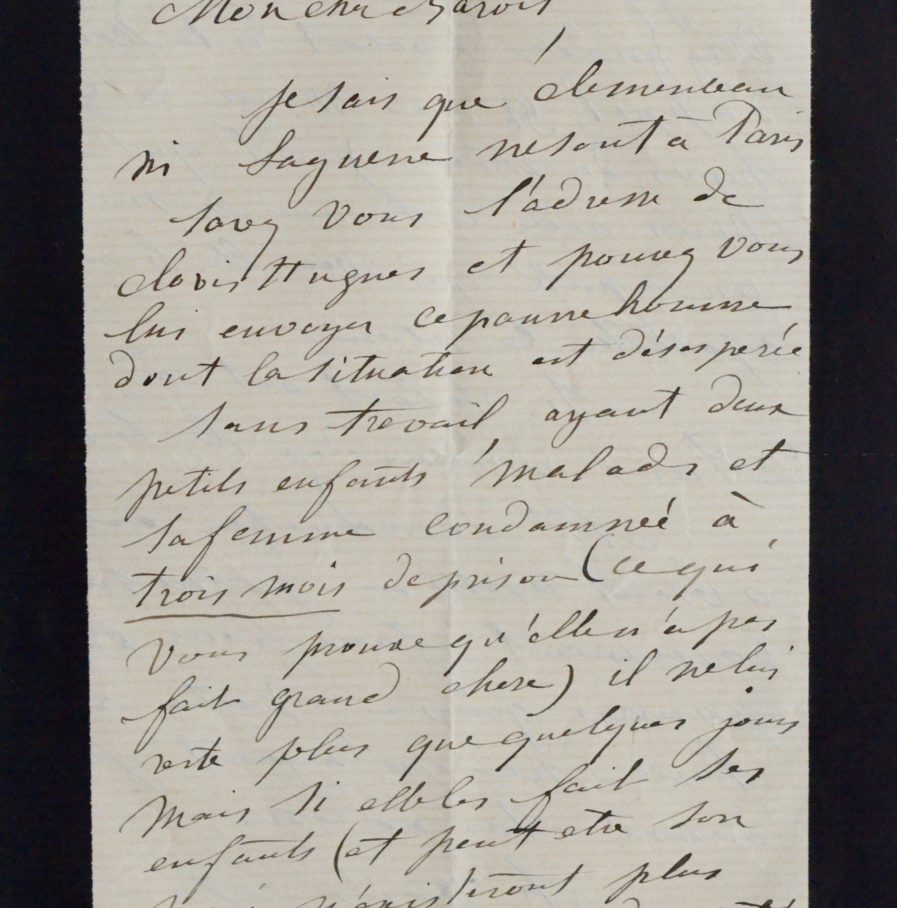 Mon cher Barois
Je sais que Clemenceau
ni Laguerre ne sont à Paris
savez vous l'adresse de
Clovis Hugues et pouvez vous
lui envoyer ce pauvre homme
dont la situation est désesperée
sans travail ayant deux
petits enfants malades et
sa femme condamneé à
trois mois de prison (ce qui
vous prouve qu'elle n'a pas
fait grand chose) il ne lui
reste plus que quelques jours
mais si elle les fait ses
enfants (et peut etre son
n'existeront plus